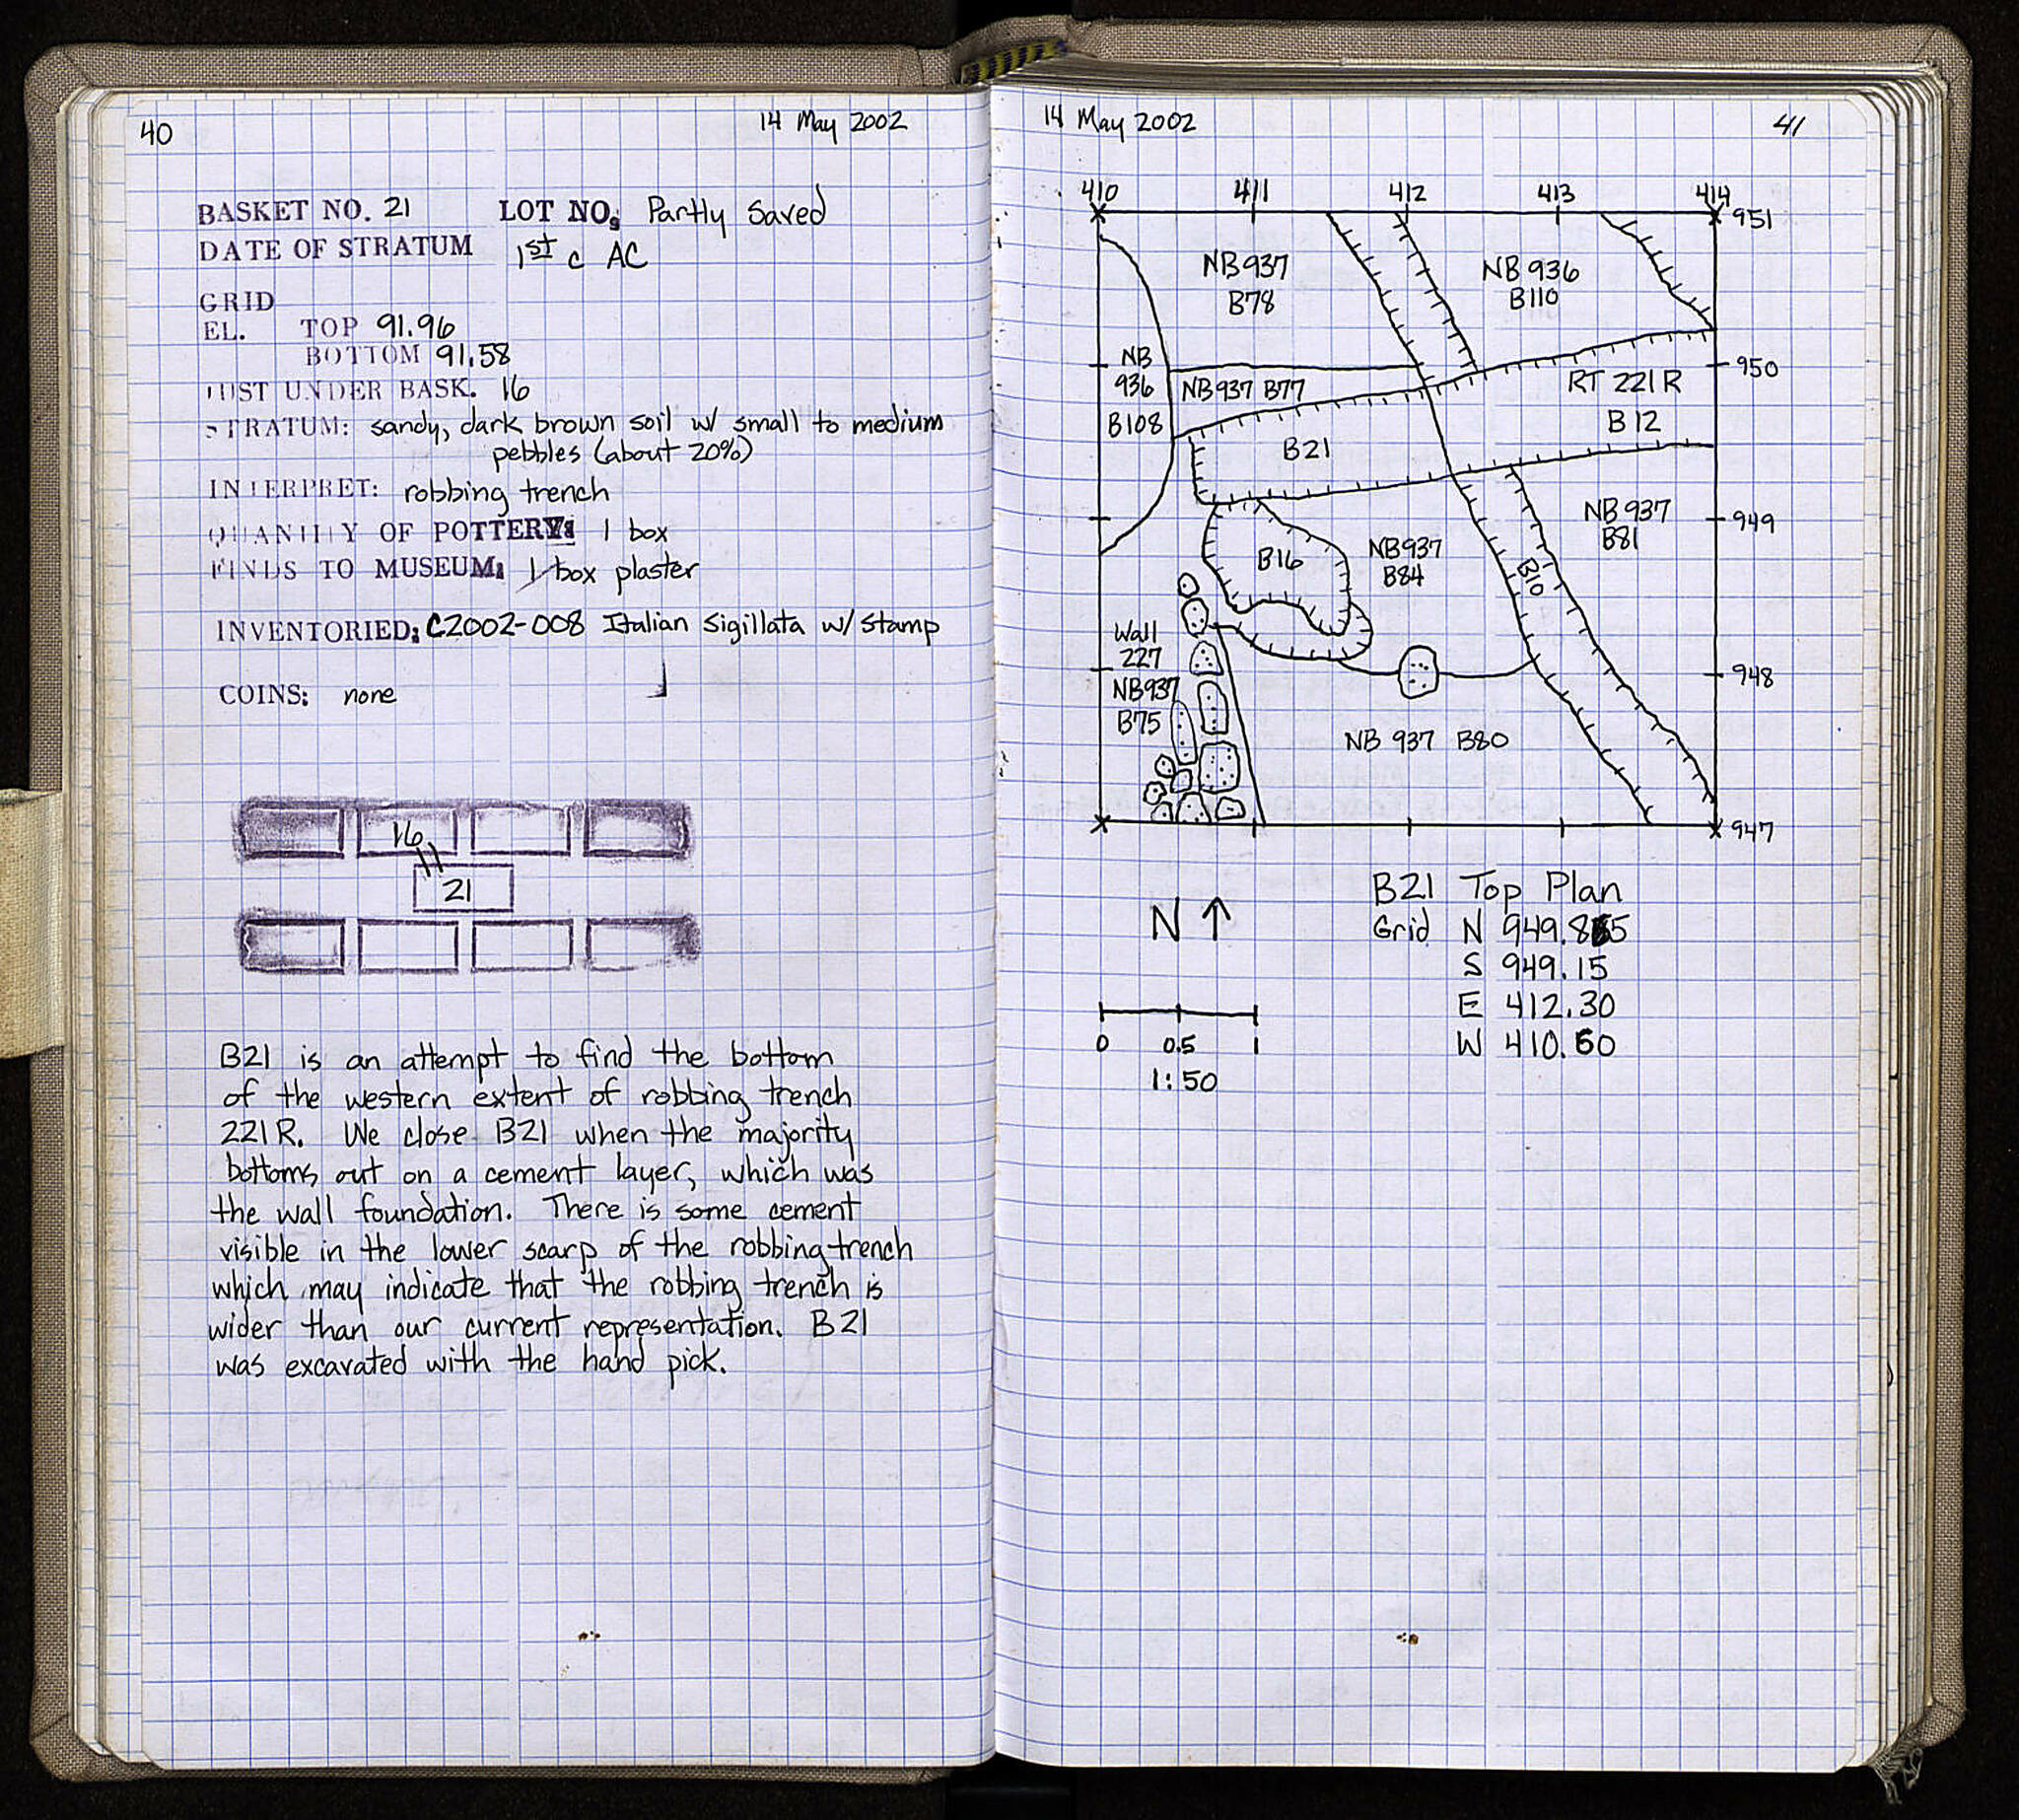 40
14 May 2002
BASKET NO. 21 LOT NO: Partly Saved
DATE OF STRATUM 1st c AC
GRID
EL. TOP 91.96
BOTTOM 91.58
JUST UNDER BASK. 16
STRATUM: sandy, dark brown soil w/ small to medium
pebbles (about 20%)
INTERPRET: robbing trench
QUANTITY OF POTTERY: 1 box
FINDS TO MUSEUM: 1 box plaster
INVENTORIED: C2002-008 Italian Sigillata w/ stamp
COINS: none
16
21
B21 is an attempt to find the bottom
of the western extent of robbing trench
221R. We close B21 when the majority
bottoms out on a cement layer, which was
the wall foundation. There is some cement
visible in the lower scarp of the robbing trench
which may indicate that the robbing trench is
wider than our current representation. B21
was excavated with the hand pick.
14 May 2002
41
410 411 412 413 414
951
NB 937
B78
NB 936
B110
950
NB
936
B108
NB 937 B77
RT 221R
B12
B21
949
NB 937
B81
B16
NB 937
B84
B10
Wall
227
948
NB 937
B75
NB 937 B80
947
B21 Top Plan
Grid N 949.85
S 949.15
E 412.30
W 410.60
N ↑
0 0.5 1
1:50